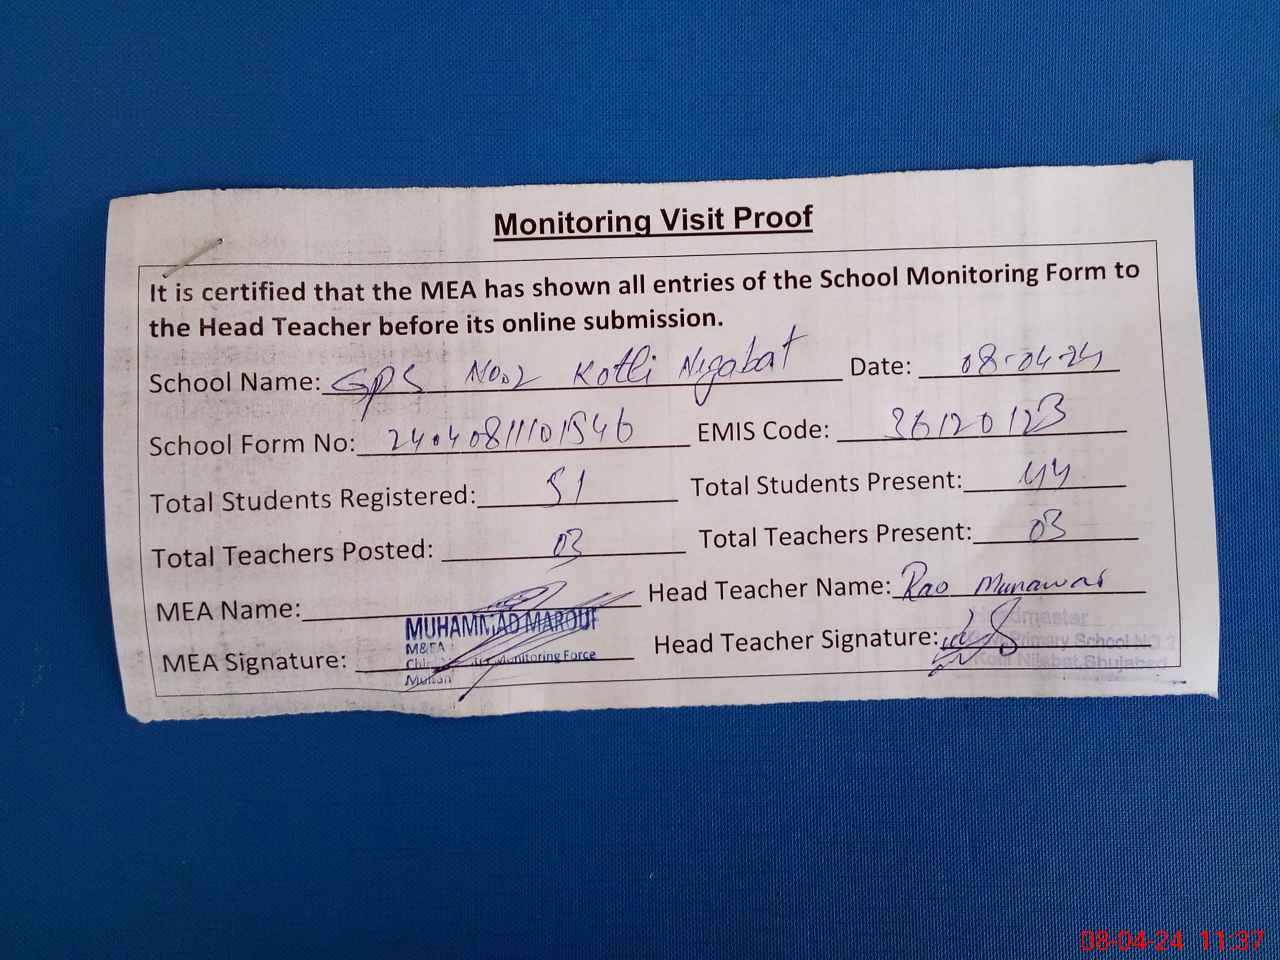 Monitoring Visit Proof
It is certified that the MEA has shown all entries of the School Monitoring Form to
the Head Teacher before its online submission.
School Name: GPS No.2 Kotli Nijabat Date: 08-04-24
School Form No: 24040811101546 EMIS Code: 36120123
Total Students Registered: 51 Total Students Present: 44
Total Teachers Posted: 03 Total Teachers Present: 03
MEA Name: Head Teacher Name: Rao Munawar
MUHAMMAD MAROUF
MEA Signature: Head Teacher Signature:
M&EA
Monitoring Force
Multan
Primary School NO.2
08-04-24 11:37